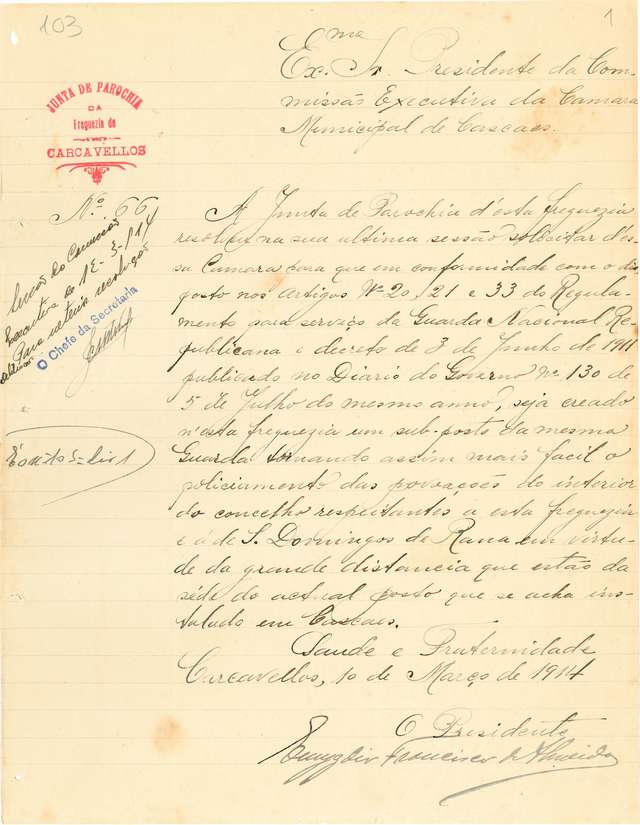 103
1
Exma. Sr. Presidente da Com-
missão Executiva da Camara
Municipal de Cascaes.
JUNTA DE PAROCHIA
DA
Freguezia de
CARCAVELLOS
Nº 66
A Junta de Parochia d'esta freguezia
resolveu na sua ultima sessão solicitar d'es-
sa Camara para que em conformidade com o dis-
posto nos artigos Nº 20, 21 e 33 do Regula-
mento para serviço da Guarda Nacional Re-
publicana e decreto de 3 de Junho de 1911
publicado no Diario do Governo nº 130 de
5 de Julho do mesmo anno, seja creado
n'esta freguezia um sub-posto da mesma
Guarda tornando assim mais facil o
policiamento das povoações do interior
do concelho respeitantes a esta freguezia
e á de S. Domingos de Rana em virtu-
de da grande distancia que estão da
séde do actual posto que se acha ins-
talado em Cascaes.
Saude e Fraternidade
Carcavellos, 10 de Março de 1914
O Presidente
Emygdio Francisco d'Almeida
Executiva de 12-3-914
Para ulterior resolução
O Chefe da Secretaria